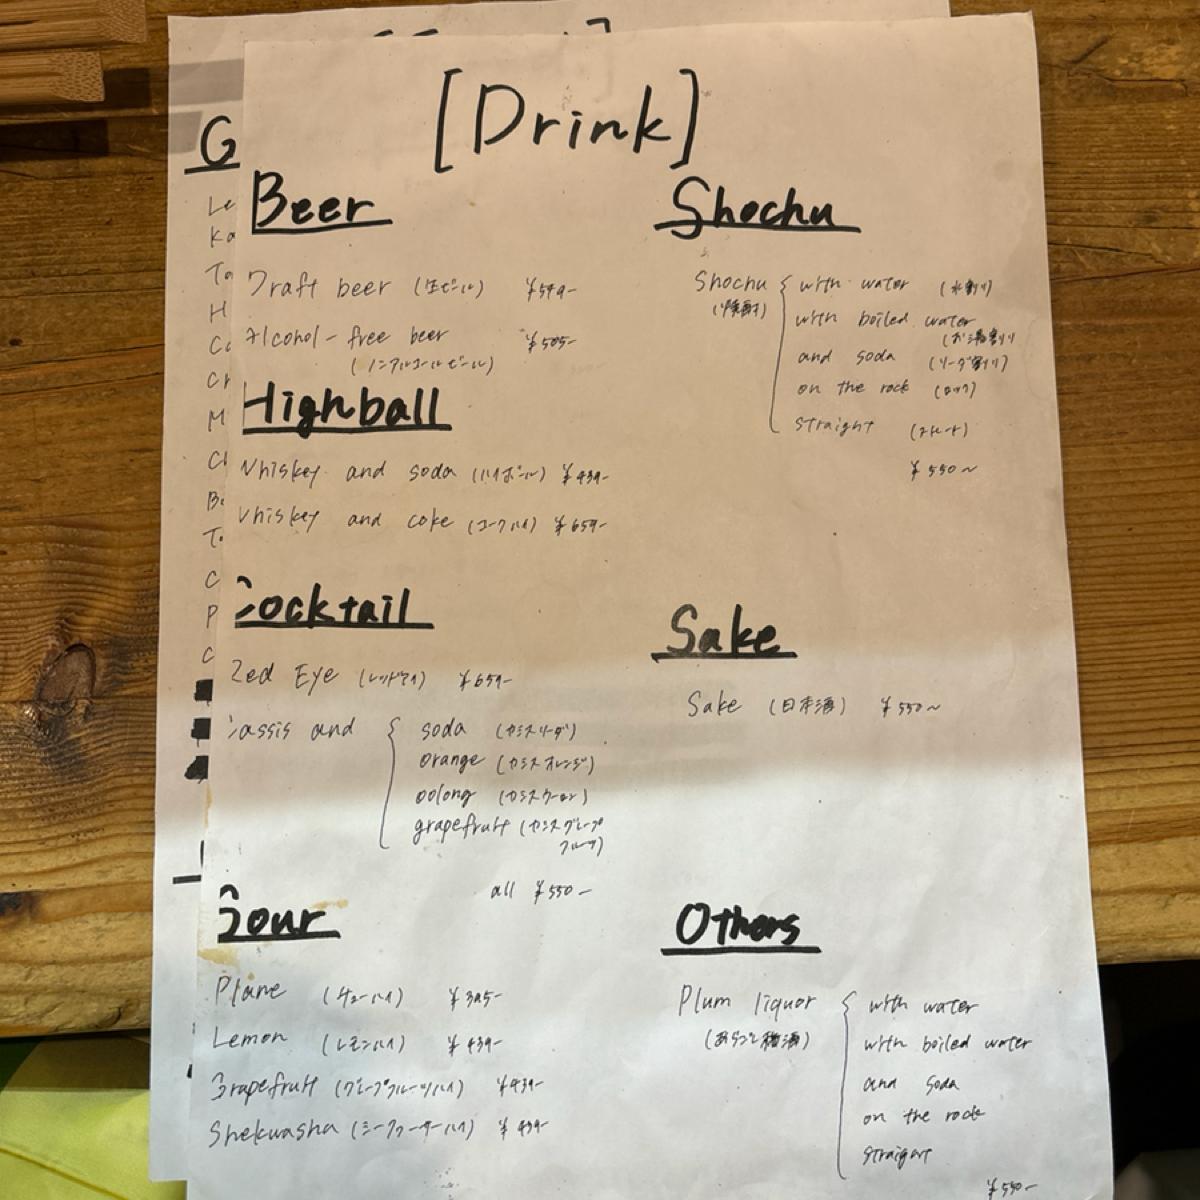 [Drink]
Beer
Draft beer (生ビール) ¥549-
Alcohol-free beer ¥505-
(ノンアルコールビール)
Highball
Whiskey and soda (ハイボール) ¥439-
Whiskey and coke (コークハイ) ¥659-
Cocktail
Red Eye (レッドアイ) ¥659-
Cassis and { soda (カシスソーダ)
orange (カシスオレンジ)
oolong (カシスウーロン)
grapefruit (カシスグレープ
フルーツ)
all ¥550-
Sour
Plane (チューハイ) ¥385-
Lemon (レモンハイ) ¥439-
Grapefruit (グレープフルーツハイ) ¥439-
Shekwasha (シークワーサーハイ) ¥439-
Shochu
Shochu { with water (水割り)
(焼酎)
with boiled water
(お湯割り)
and soda (ソーダ割り)
on the rock (ロック)
straight (ストレート)
¥550~
Sake
Sake (日本酒) ¥550~
Others
Plum liquor { with water
(あらごし梅酒)
with boiled water
and soda
on the rock
straight
¥550-
G
Le
Ka
To
H
Co
Ch
M
Ch
Be
To
C
P
C